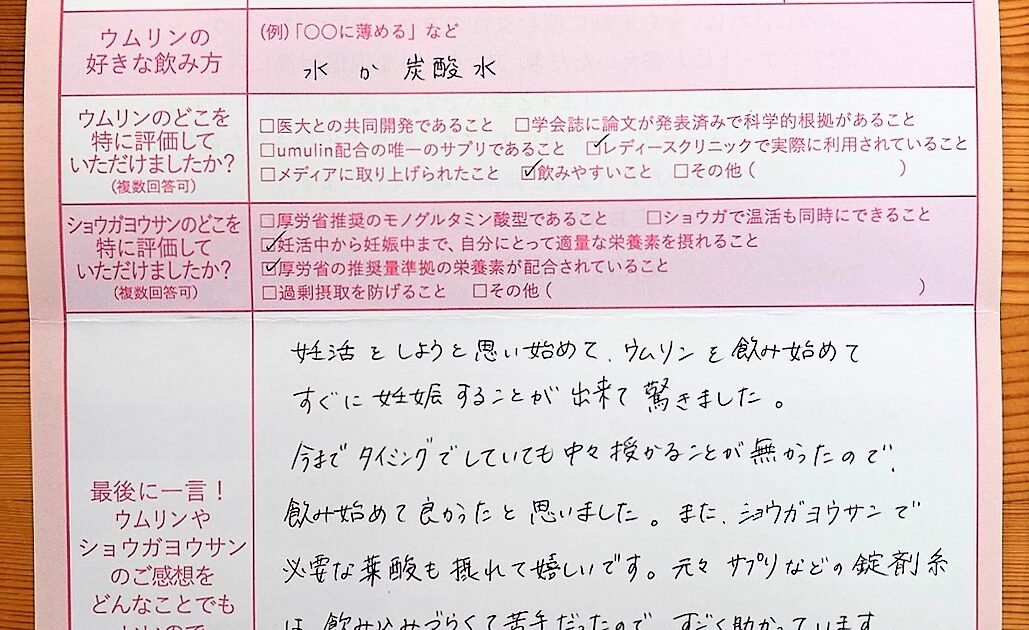 ウムリンの
好きな飲み方
(例)「〇〇に薄める」など
水 か 炭酸水
ウムリンのどこを
特に評価して
いただけましたか?
(複数回答可)
□医大との共同開発であること □学会誌に論文が発表済みで科学的根拠があること
□umulin配合の唯一のサプリであること ☑レディースクリニックで実際に利用されていること
□メディアに取り上げられたこと ☑飲みやすいこと □その他( )
ショウガヨウサンのどこを
特に評価して
いただけましたか?
(複数回答可)
□厚労省推奨のモノグルタミン酸型であること □ショウガで温活も同時にできること
☑妊活中から妊娠中まで、自分にとって適量な栄養素を摂れること
☑厚労省の推奨量準拠の栄養素が配合されていること
□過剰摂取を防げること □その他( )
最後に一言!
ウムリンや
ショウガヨウサン
のご感想を
どんなことでも
いいので
妊活をしようと思い始めて、ウムリンを飲み始めて
すぐに妊娠することが出来て驚きました。
今までタイミングでしていても中々授かることが無かったので、
飲み始めて良かったと思いました。また、ショウガヨウサンで
必要な葉酸も摂れて嬉しいです。元々サプリなどの錠剤系
は、飲み込みづらくて苦手だったので、すごく助かっています